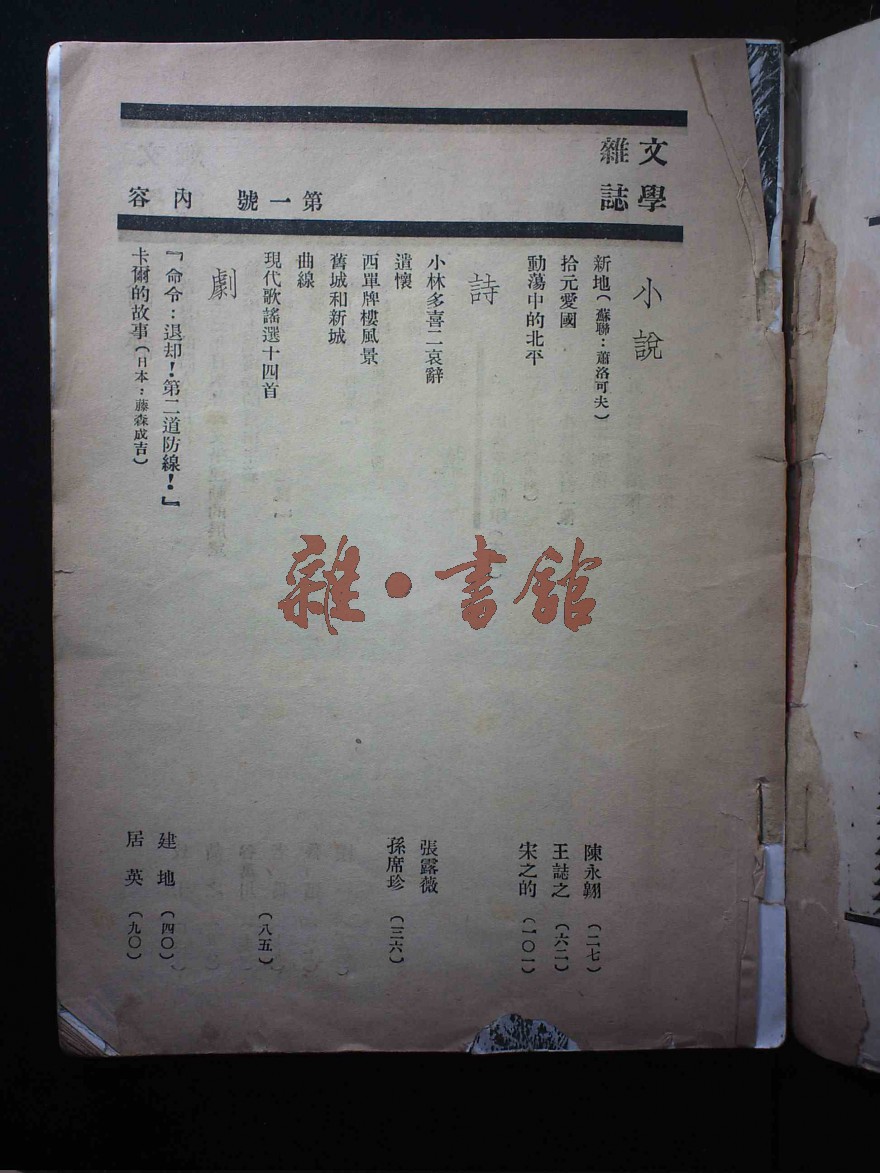 文學
雜誌
第一號 內容
小說
新地（蘇聯：蕭洛可夫） 陳永翺（二七）
拾元愛國 王誌之（六二）
動蕩中的北平 宋之的（一〇一）
詩
小林多喜二哀辭 張露薇
遣懷 孫席珍（三六）
西單牌樓風景
舊城和新城
曲線
現代歌謠選十四首（八五）
劇
『命令：退却！第二道防線！』 建地（四〇）
卡爾的故事（日本：藤森成吉） 居英（九〇）
雜·書館